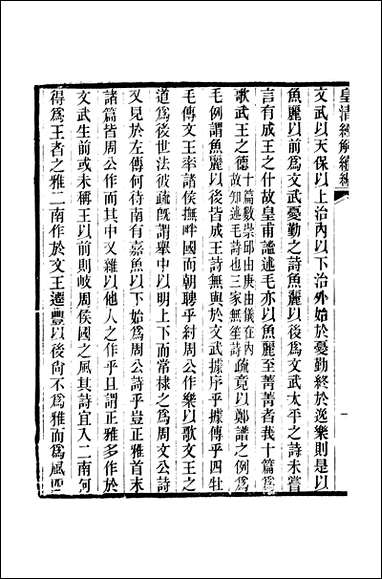 皇清經解續編
文武以天保以上治內以下治外始於憂勤終於逸樂則是以
魚麗以前爲文武憂勤之詩魚麗以後爲文武太平之詩未嘗
言有成王之什故皇甫謐述毛亦以魚麗至菁菁者莪十篇爲
歌武王之德十篇數崇邱由庚由儀在內故知述毛詩也三家無笙詩疏竟以鄭譜之例爲
毛例謂魚麗以後皆成王詩無與於文武據序乎據傳乎四牡
毛傳文王率諸侯撫畔國而朝聘乎紂周公作樂以歌文王之
道爲後世法彼疏旣謂舉中以明上下而常棣之爲周文公詩
又見於左傳何待南有嘉魚以下始爲周公詩乎豈正雅首末
諸篇皆周公作而其中又雜以他人之作乎且謂正雅多作於
文武生前或未稱王以前則岐周侯國之風其詩宜入二南何
得爲王者之雅二南作於文王遷豐以後尙不爲雅而爲風